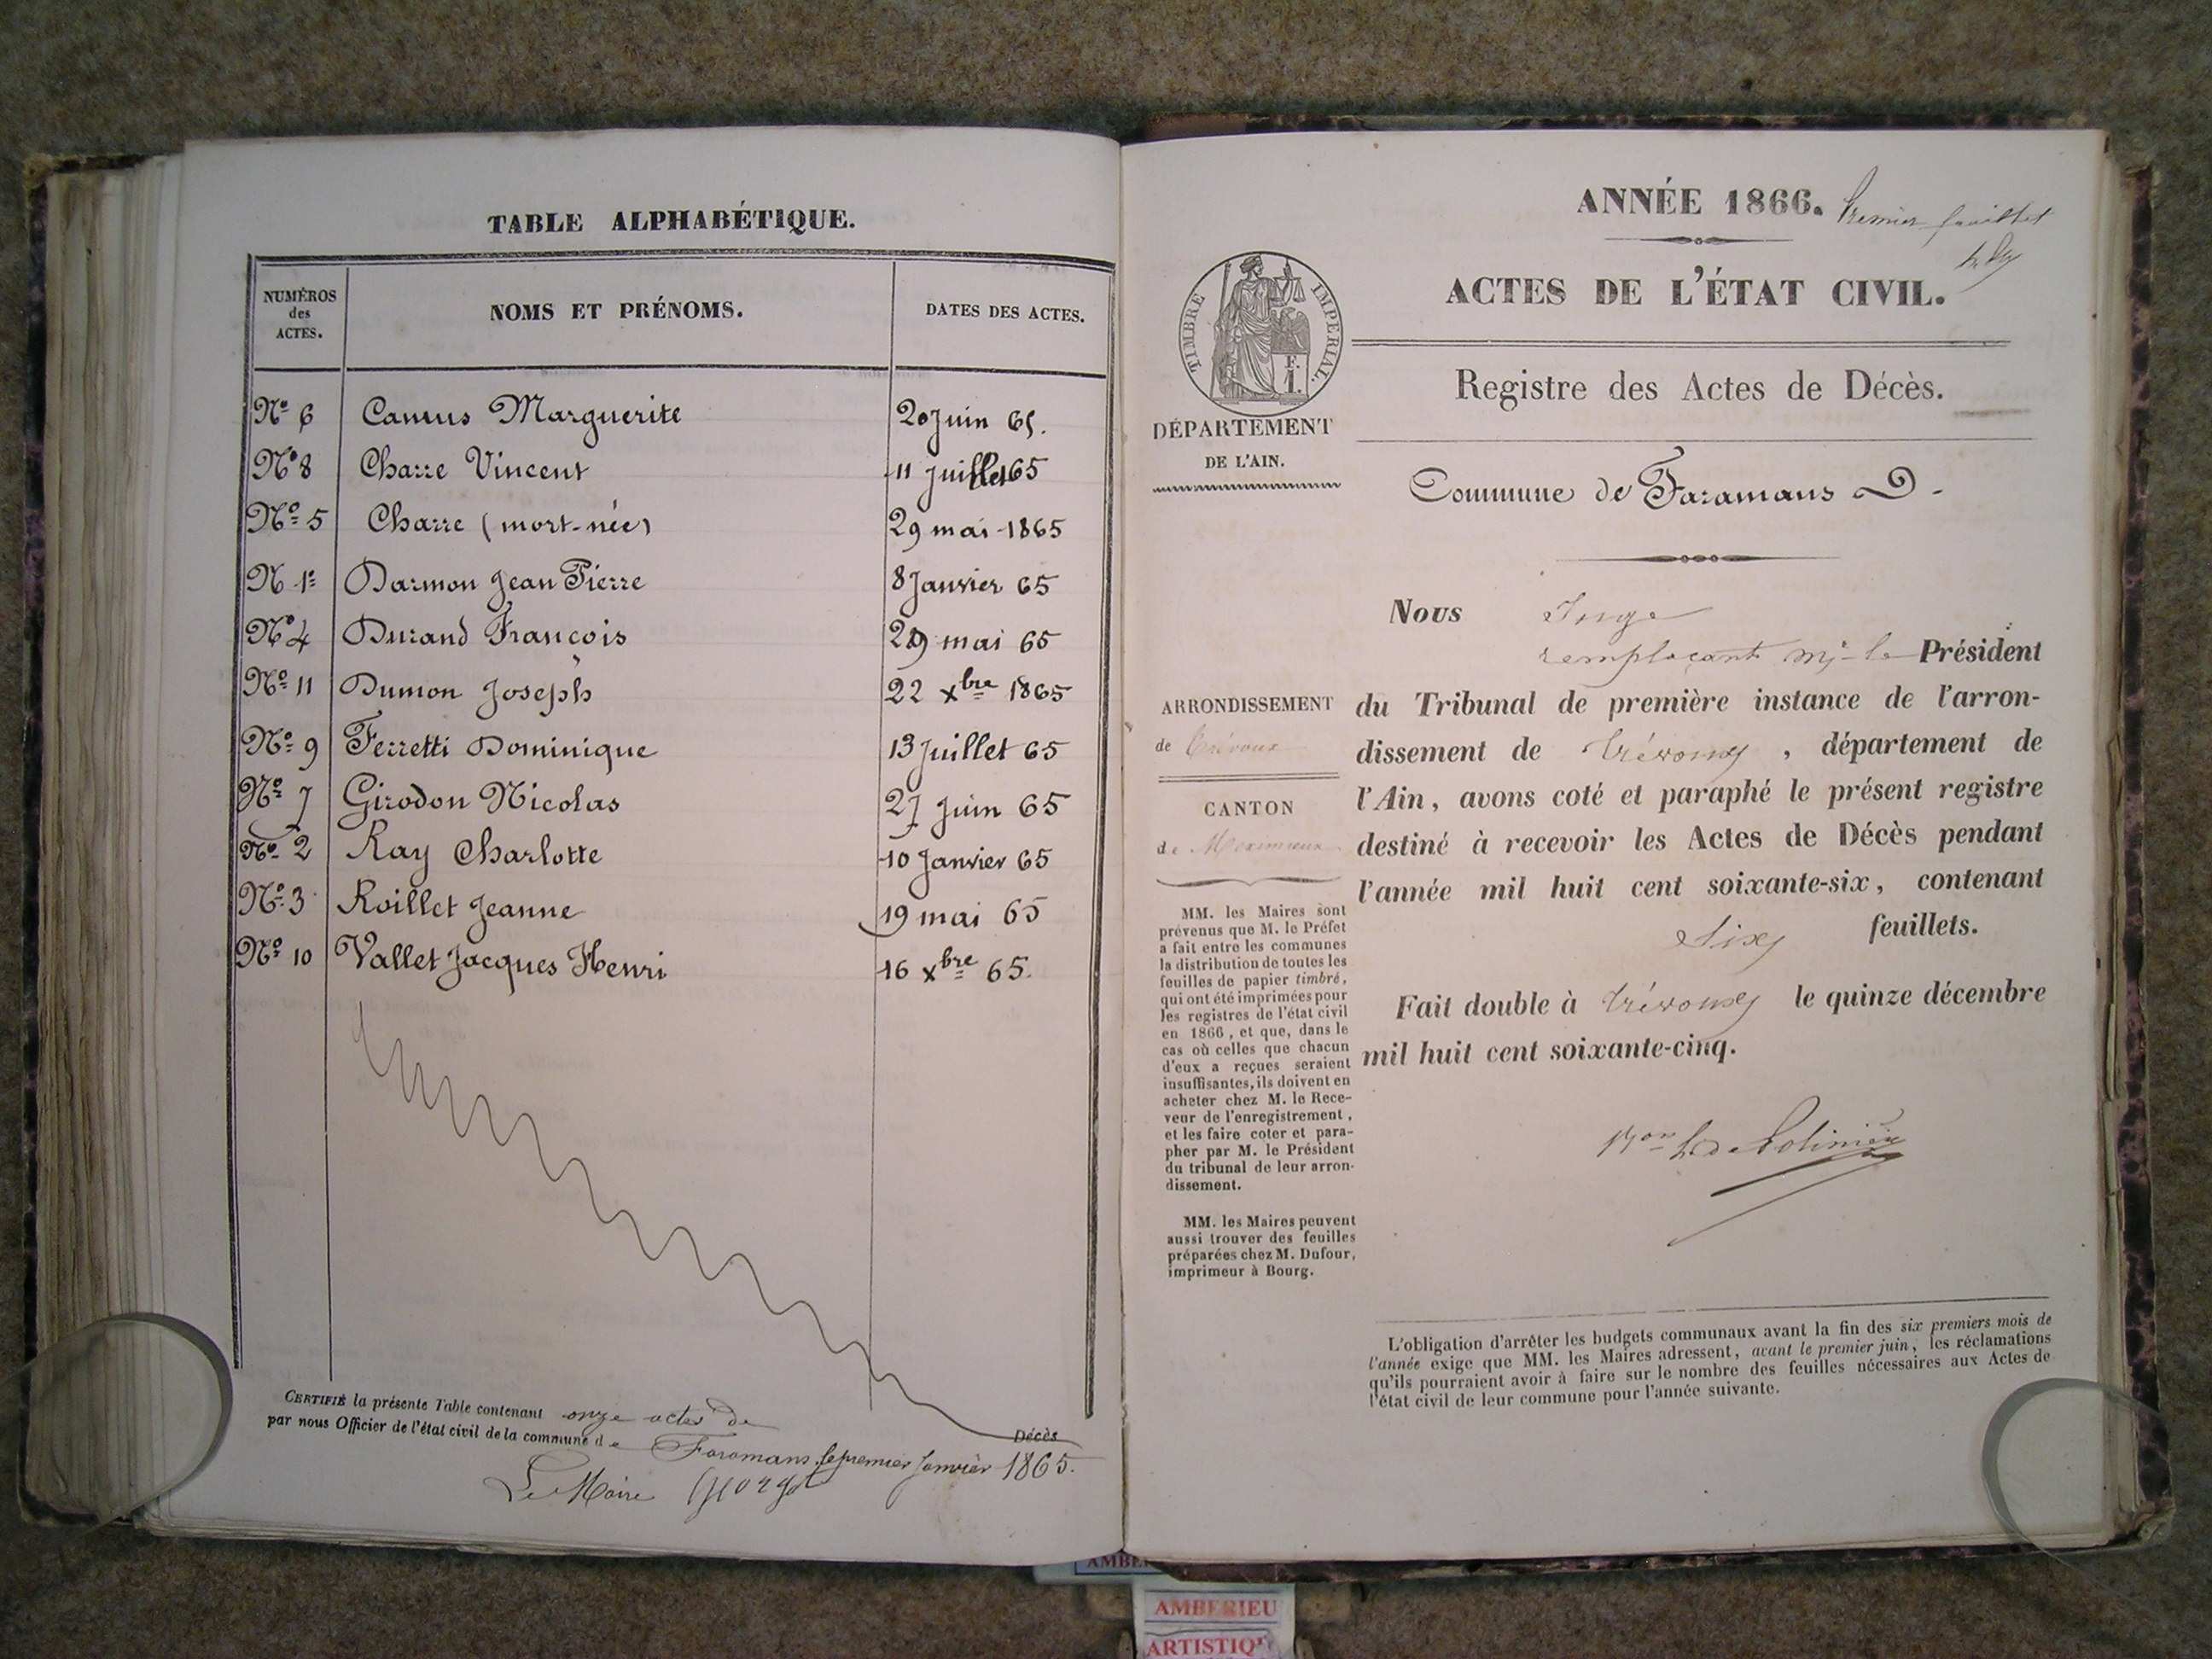 TABLE ALPHABÉTIQUE.
NUMÉROS
des
ACTES.
NOMS ET PRÉNOMS.
DATES DES ACTES.
Nº 6 Camus Marguerite 20 Juin 65.
Nº 8 Charre Vincent 11 Juillet 65
Nº 5 Charre (mort-née) 29 mai 1865
N 1º Darmon Jean Pierre 8 Janvier 65
Nº 4 Durand François 29 mai 65
Nº 11 Dumon Joseph 22 xbre 1865
Nº 9 Ferretti Dominique 13 Juillet 65
Nº 7 Girodon Nicolas 27 Juin 65
Nº 2 Ray Charlotte 10 Janvier 65
Nº 3 Roillet Jeanne 19 mai 65
Nº 10 Vallet Jacques Henri 16 xbre 65.
CERTIFIÉ la présente Table contenant onze actes de Décès
par nous Officier de l'état civil de la commune de Faramans, le premier Janvier 1865.
Le Maire
ANNÉE 1866. Premier feuillet
ACTES DE L'ÉTAT CIVIL.
TIMBRE IMPERIAL.
Registre des Actes de Décès.
DÉPARTEMENT
DE L'AIN.
Commune de Faramans
Nous Juge
remplaçant Mr le Président
du Tribunal de première instance de l'arron-
dissement de Trévoux, département de
l'Ain, avons coté et paraphé le présent registre
destiné à recevoir les Actes de Décès pendant
l'année mil huit cent soixante-six, contenant
Six feuillets.
Fait double à Trévoux le quinze décembre
mil huit cent soixante-cinq.
ARRONDISSEMENT
de Trévoux
CANTON
de Meximieux
MM. les Maires sont
prévenus que M. le Préfet
a fait entre les communes
la distribution de toutes les
feuilles de papier timbré,
qui ont été imprimées pour
les registres de l'état civil
en 1866, et que, dans le
cas où celles que chacun
d'eux a reçues seraient
insuffisantes, ils doivent en
acheter chez M. le Rece-
veur de l'enregistrement,
et les faire coter et para-
pher par M. le Président
du tribunal de leur arron-
dissement.
MM. les Maires peuvent
aussi trouver des feuilles
préparées chez M. Dufour,
imprimeur à Bourg.
L'obligation d'arrêter les budgets communaux avant la fin des six premiers mois de
l'année exige que MM. les Maires adressent, avant le premier juin, les réclamations
qu'ils pourraient avoir à faire sur le nombre des feuilles nécessaires aux Actes de
l'état civil de leur commune pour l'année suivante.
AMBERIEU
ARTISTIQ